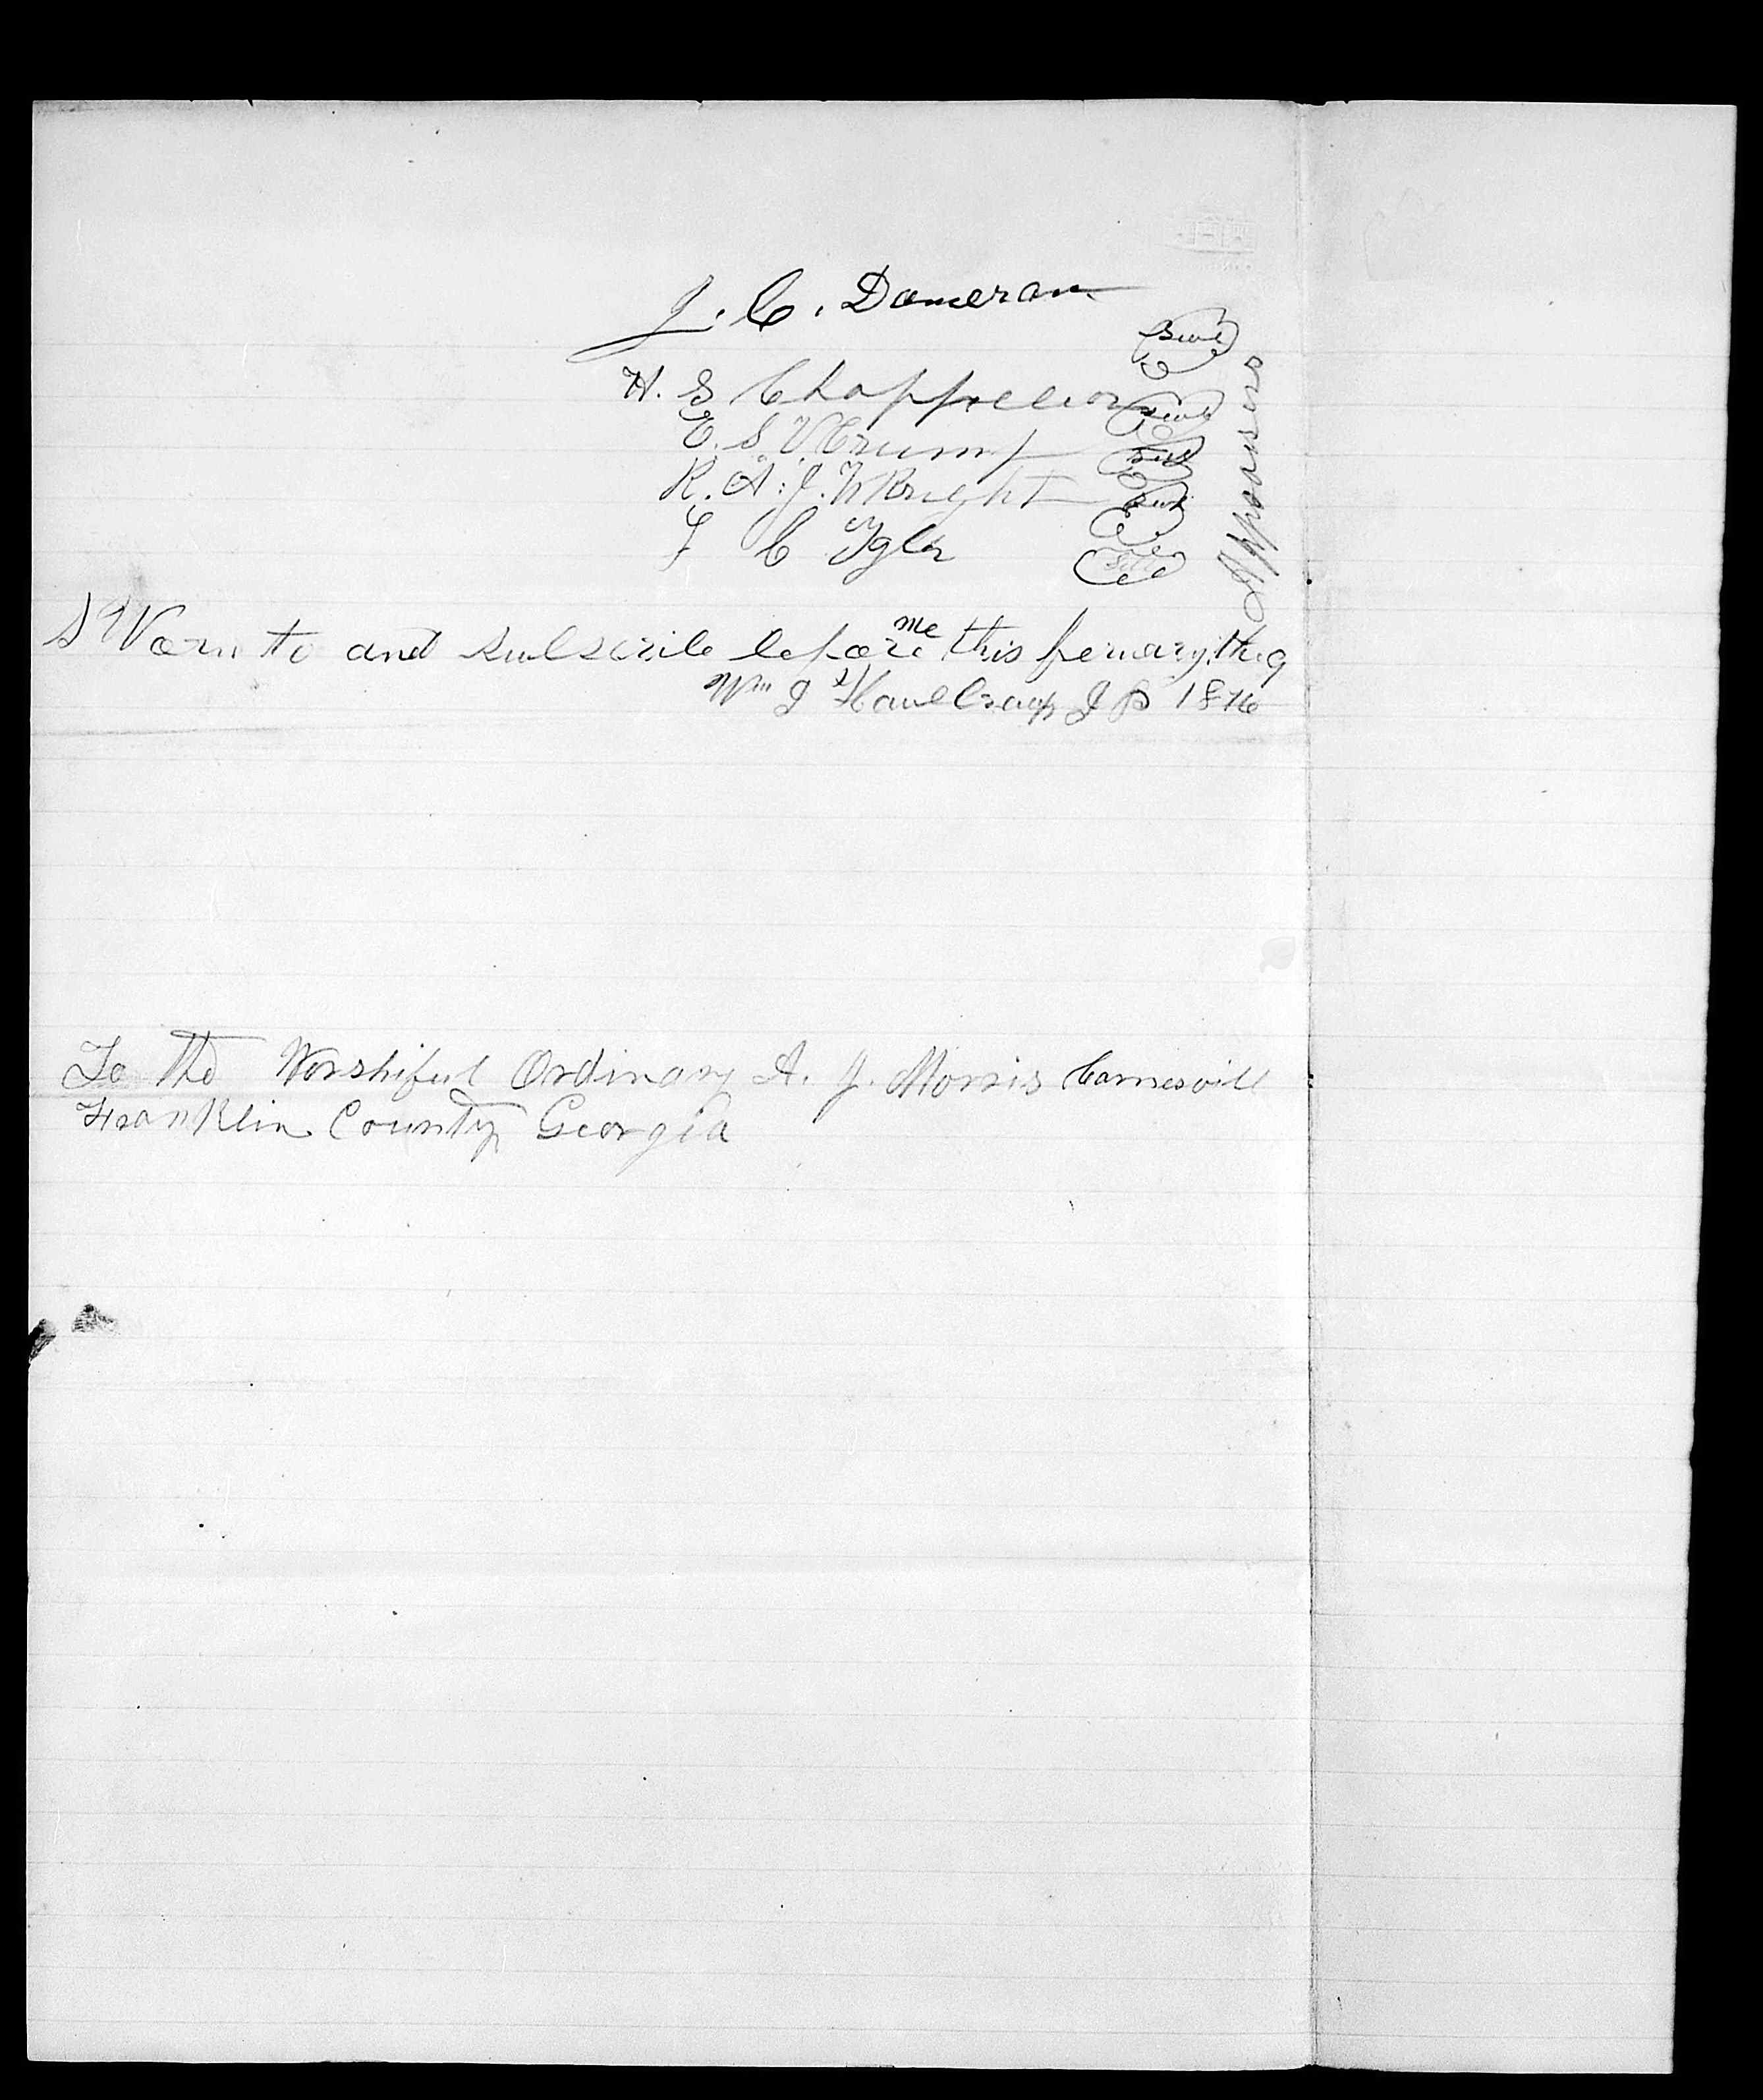 J. C. Dameron Seal
H. S Chappelear Seal
E. S. V. Crump Seal
R. A. J. WRright Seal
F C Tyler Seal
Appraisers
SWorn to and subscribe before me this feruary, the 9
Wm J Hawl J P 1876
To the Worshiful Ordinary A. J. Morris Carnesvill
Franklin County Georgia